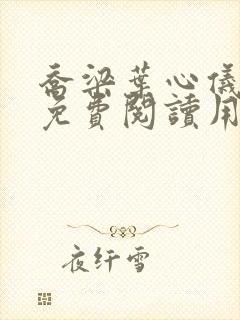 喬梁葉心儀
免費閱讀用
夜纤雪